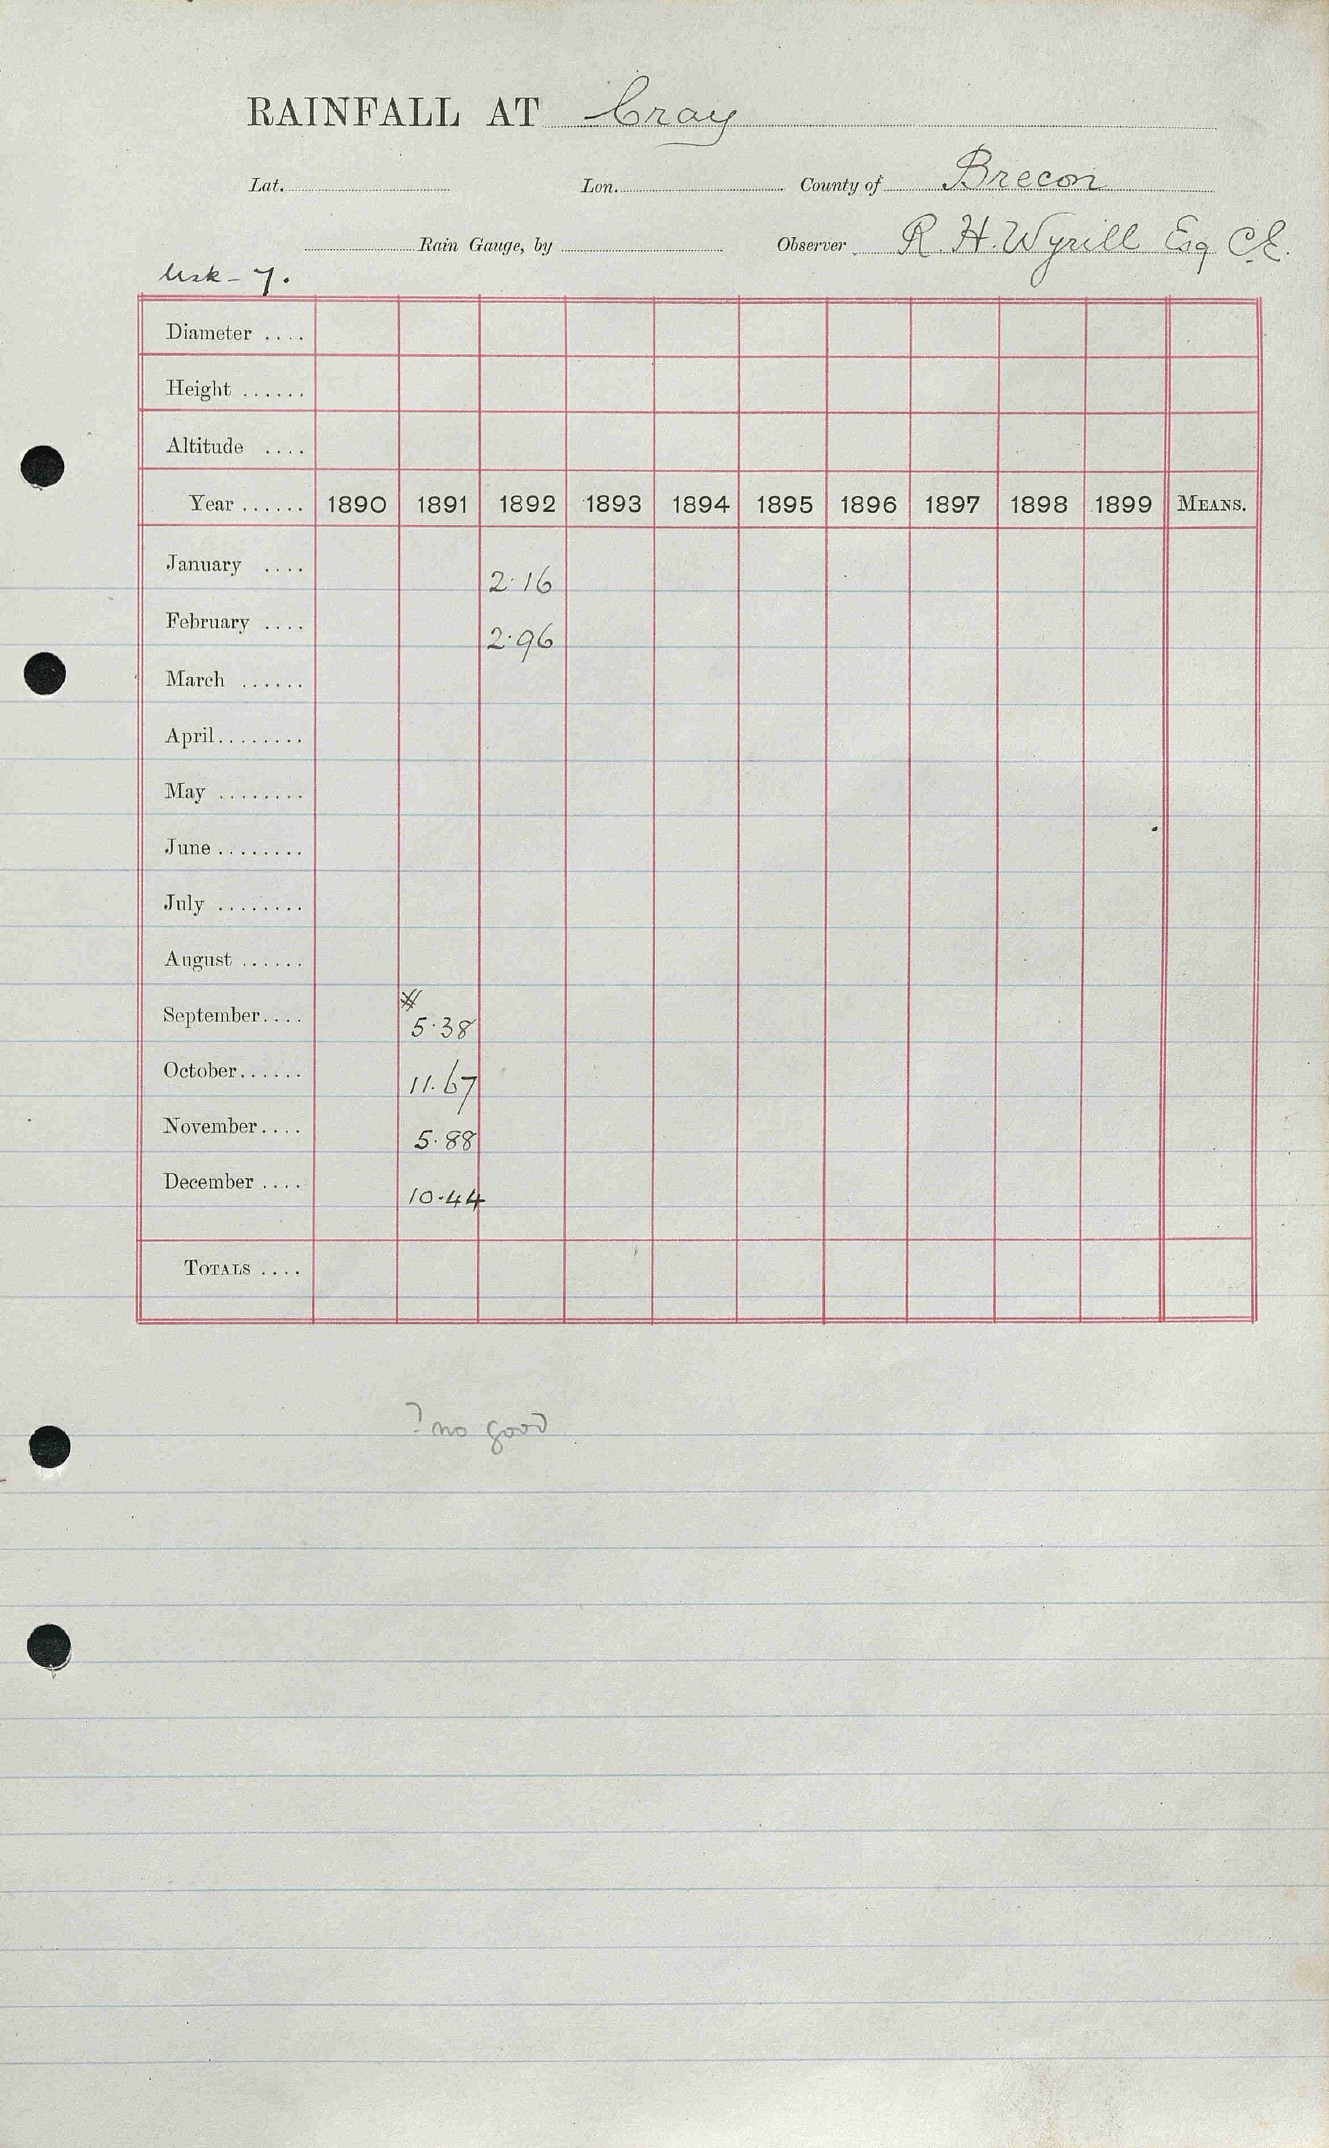 RAINFALL AT Cray
Lat. Lon. County of Brecon
Rain Gauge, by Observer R. H. Wyrill Esq C.E.
Usk - 7.
Diameter ....
Height ......
Altitude ....
Year ...... 1890 1891 1892 1893 1894 1895 1896 1897 1898 1899 MEANS.
January .... 2.16
February .... 2.96
March ......
April........
May ........
June ........
July ........
August ......
#
September.... 5.38
October...... 11.67
November.... 5.88
December .... 10.44
TOTALS ....
? no good